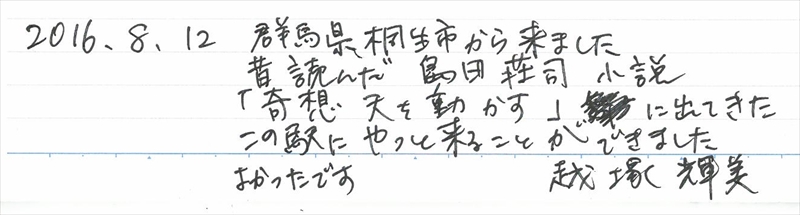 2016、8、12 群馬県桐生市から来ました
昔読んだ 島田荘司 小説
「奇想 天を動かす」 に出てきた
この駅に やっと来ることができました
よかったです 越塚 輝美